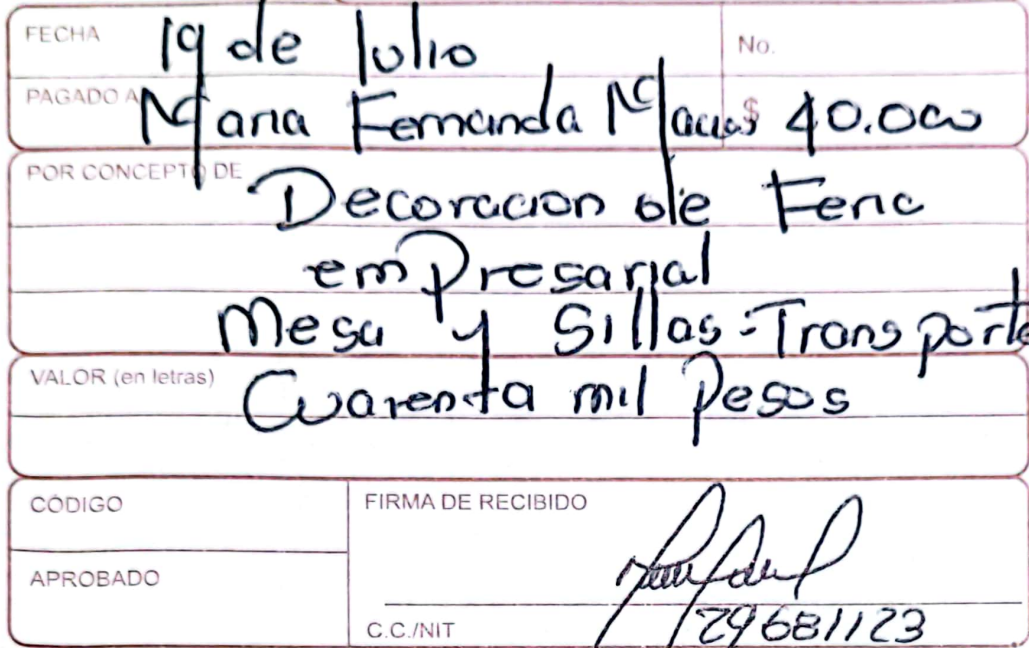 FECHA 19 de Julio No.
PAGADO A Maria Fernanda Macias $ 40.000
POR CONCEPTO DE Decoracion de Feria
emPresarial
Mesa y Sillas - Transporte
VALOR (en letras) Cuarenta mil Pesos
CÓDIGO FIRMA DE RECIBIDO
APROBADO
C.C./NIT 29681123